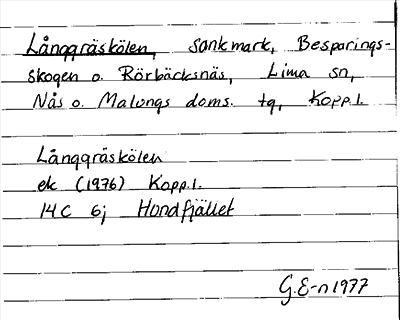 Långgräskölen, sankmark, Besparings-
skogen o. Rörbäcksnäs, Lima sn,
Nås o. Malungs doms. tg, Kopp.l.
Långgräskölen
ek (1976) Kopp.l.
14C 6j Hondfjället
G.E-n 1977